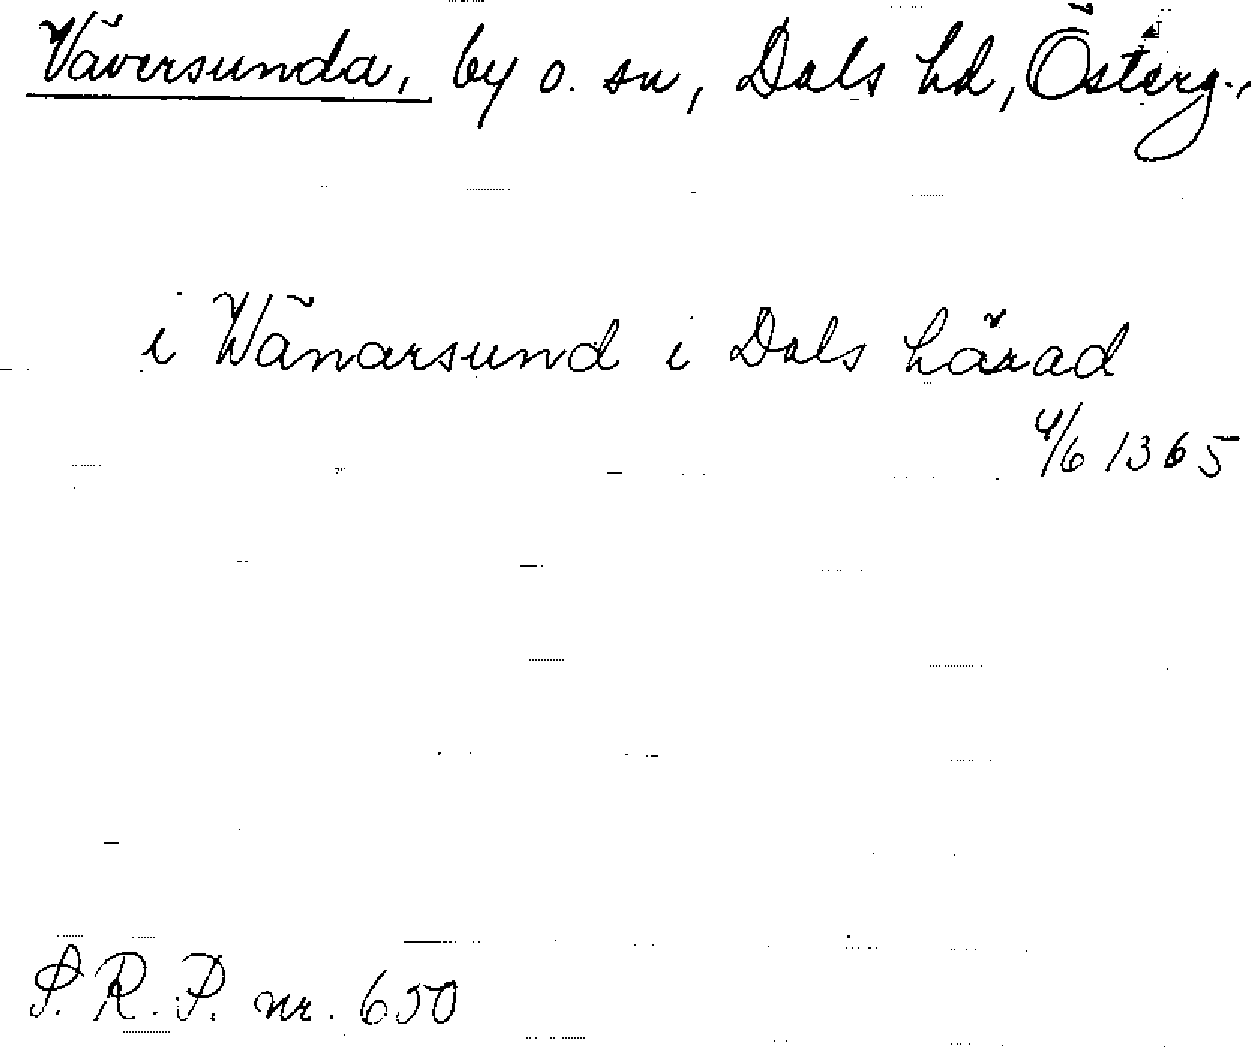 Väversunda, by o. sn, Dals hd, Österg.,
i Wänarsund i Dals härad
4/6 1365
S.R.P. nr. 650